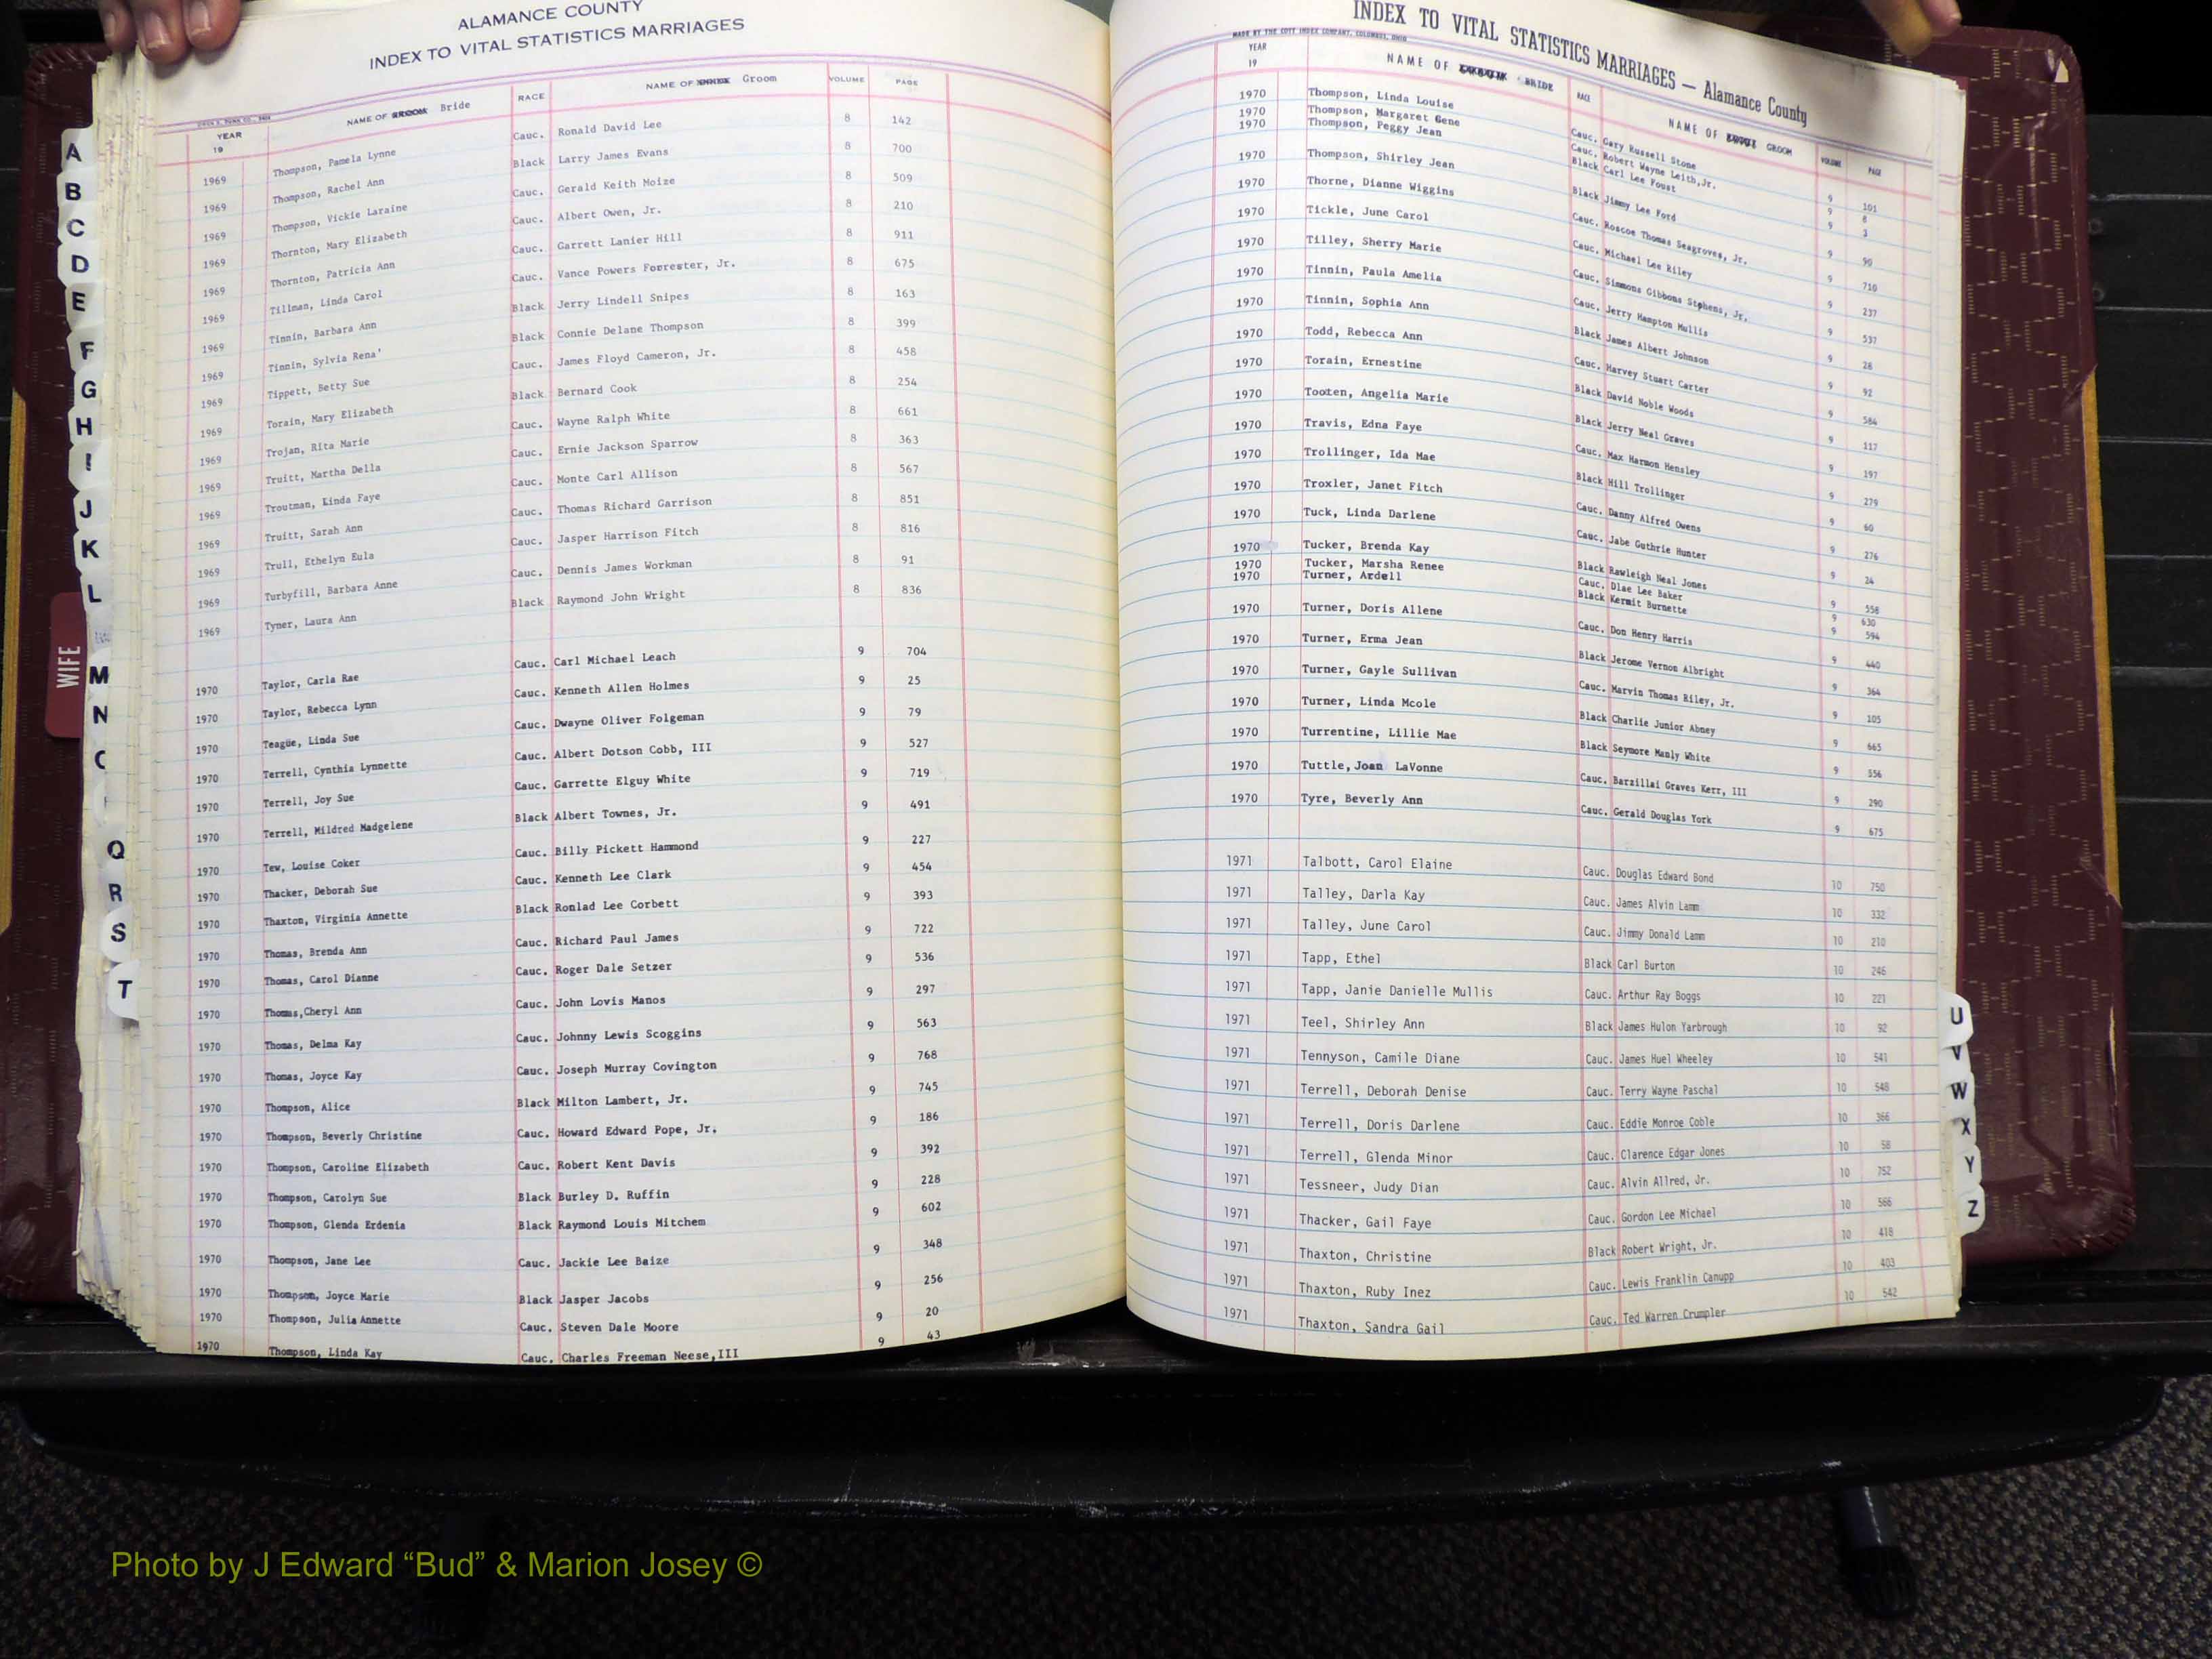 ALAMANCE COUNTY
INDEX TO VITAL STATISTICS MARRIAGES
YEAR 19 NAME OF Bride RACE NAME OF Groom VOLUME PAGE
1969 Thompson, Pamela Lynne Cauc. Ronald David Lee 8 142
1969 Thompson, Rachel Ann Black Larry James Evans 8 700
1969 Thompson, Vickie Laraine Cauc. Gerald Keith Moize 8 509
1969 Thornton, Mary Elizabeth Cauc. Albert Owen, Jr. 8 210
1969 Thornton, Patricia Ann Cauc. Garrett Lanier Hill 8 911
1969 Tillman, Linda Carol Cauc. Vance Powers Forrester, Jr. 8 675
1969 Tinnin, Barbara Ann Black Jerry Lindell Snipes 8 163
1969 Tinnin, Sylvia Rena' Black Connie Delane Thompson 8 399
1969 Tippett, Betty Sue Cauc. James Floyd Cameron, Jr. 8 458
1969 Torain, Mary Elizabeth Black Bernard Cook 8 254
1969 Trojan, Rita Marie Cauc. Wayne Ralph White 8 661
1969 Truitt, Martha Della Cauc. Ernie Jackson Sparrow 8 363
1969 Troutman, Linda Faye Cauc. Monte Carl Allison 8 567
1969 Truitt, Sarah Ann Cauc. Thomas Richard Garrison 8 851
1969 Trull, Ethelyn Eula Cauc. Jasper Harrison Fitch 8 816
1969 Turbyfill, Barbara Anne Cauc. Dennis James Workman 8 91
1969 Tyner, Laura Ann Black Raymond John Wright 8 836
1970 Taylor, Carla Rae Cauc. Carl Michael Leach 9 704
1970 Taylor, Rebecca Lynn Cauc. Kenneth Allen Holmes 9 25
1970 Teague, Linda Sue Cauc. Dwayne Oliver Folgeman 9 79
1970 Terrell, Cynthia Lynnette Cauc. Albert Dotson Cobb, III 9 527
1970 Terrell, Joy Sue Cauc. Garrette Elguy White 9 719
1970 Terrell, Mildred Madgelene Black Albert Townes, Jr. 9 491
1970 Tew, Louise Coker Cauc. Billy Pickett Hammond 9 227
1970 Thacker, Deborah Sue Cauc. Kenneth Lee Clark 9 454
1970 Thaxton, Virginia Annette Black Ronlad Lee Corbett 9 393
1970 Thomas, Brenda Ann Cauc. Richard Paul James 9 722
1970 Thomas, Carol Dianne Cauc. Roger Dale Setzer 9 536
1970 Thomas,Cheryl Ann Cauc. John Lovis Manos 9 297
1970 Thomas, Delma Kay Cauc. Johnny Lewis Scoggins 9 563
1970 Thomas, Joyce Kay Cauc. Joseph Murray Covington 9 768
1970 Thompson, Alice Black Milton Lambert, Jr. 9 745
1970 Thompson, Beverly Christine Cauc. Howard Edward Pope, Jr. 9 186
1970 Thompson, Caroline Elizabeth Cauc. Robert Kent Davis 9 392
1970 Thompson, Carolyn Sue Black Burley D. Ruffin 9 228
1970 Thompson, Glenda Erdenia Black Raymond Louis Mitchem 9 602
1970 Thompson, Jane Lee Cauc. Jackie Lee Baize 9 348
1970 Thompson, Joyce Marie Black Jasper Jacobs 9 256
1970 Thompson, Julia Annette Cauc. Steven Dale Moore 9 20
1970 Thompson, Linda Kay Cauc. Charles Freeman Neese,III 9 43
A
B
C
D
E
F
G
H
I
J
K
L
WIFE
M
N
Q
R
S
T
INDEX TO VITAL STATISTICS MARRIAGES — Alamance County
MADE BY THE COTT INDEX COMPANY, COLUMBUS, OHIO
YEAR 19 NAME OF BRIDE RACE NAME OF GROOM VOLUME PAGE
1970 Thompson, Linda Louise Cauc. Gary Russell Stone 9 101
1970 Thompson, Margaret Gene Cauc. Robert Wayne Leith,Jr. 9 8
1970 Thompson, Peggy Jean Black Carl Lee Foust 9 3
1970 Thompson, Shirley Jean Black Jimmy Lee Ford 9 90
1970 Thorne, Dianne Wiggins Cauc. Roscoe Thomas Seagroves, Jr. 9 710
1970 Tickle, June Carol Cauc. Michael Lee Riley 9 237
1970 Tilley, Sherry Marie Cauc. Simmons Gibbons Stphens, Jr. 9 537
1970 Tinnin, Paula Amelia Cauc. Jerry Hampton Mullis 9 28
1970 Tinnin, Sophia Ann Black James Albert Johnson 9 92
1970 Todd, Rebecca Ann Cauc. Harvey Stuart Carter 9 584
1970 Torain, Ernestine Black David Noble Woods 9 117
1970 Tooten, Angelia Marie Black Jerry Neal Graves 9 197
1970 Travis, Edna Faye Cauc. Max Harmon Hensley 9 279
1970 Trollinger, Ida Mae Black Hill Trollinger 9 60
1970 Troxler, Janet Fitch Cauc. Danny Alfred Owens 9 276
1970 Tuck, Linda Darlene Cauc. Jabe Guthrie Hunter 9 24
1970 Tucker, Brenda Kay Black Rawleigh Neal Jones 9 558
1970 Tucker, Marsha Renee Cauc. Dlae Lee Baker 9 630
1970 Turner, Ardell Black Kermit Burnette 9 594
1970 Turner, Doris Allene Cauc. Don Henry Harris 9 440
1970 Turner, Erma Jean Black Jerome Vernon Albright 9 364
1970 Turner, Gayle Sullivan Cauc. Marvin Thomas Riley, Jr. 9 105
1970 Turner, Linda Mcole Black Charlie Junior Abney 9 665
1970 Turrentine, Lillie Mae Black Seymore Manly White 9 556
1970 Tuttle,Joan LaVonne Cauc. Barzillai Graves Kerr, III 9 290
1970 Tyre, Beverly Ann Cauc. Gerald Douglas York 9 675
1971 Talbott, Carol Elaine Cauc. Douglas Edward Bond 10 750
1971 Talley, Darla Kay Cauc. James Alvin Lamm 10 332
1971 Talley, June Carol Cauc. Jimmy Donald Lamm 10 210
1971 Tapp, Ethel Black Carl Burton 10 246
1971 Tapp, Janie Danielle Mullis Cauc. Arthur Ray Boggs 10 221
1971 Teel, Shirley Ann Black James Hulon Yarbrough 10 92
1971 Tennyson, Camile Diane Cauc. James Huel Wheeley 10 541
1971 Terrell, Deborah Denise Cauc. Terry Wayne Paschal 10 548
1971 Terrell, Doris Darlene Cauc. Eddie Monroe Coble 10 366
1971 Terrell, Glenda Minor Cauc. Clarence Edgar Jones 10 58
1971 Tessneer, Judy Dian Cauc. Alvin Allred, Jr. 10 752
1971 Thacker, Gail Faye Cauc. Gordon Lee Michael 10 566
1971 Thaxton, Christine Black Robert Wright, Jr. 10 418
1971 Thaxton, Ruby Inez Cauc. Lewis Franklin Canupp 10 403
1971 Thaxton, Sandra Gail Cauc. Ted Warren Crumpler 10 542
U
V
W
X
Y
Z
Photo by J Edward “Bud” & Marion Josey ©